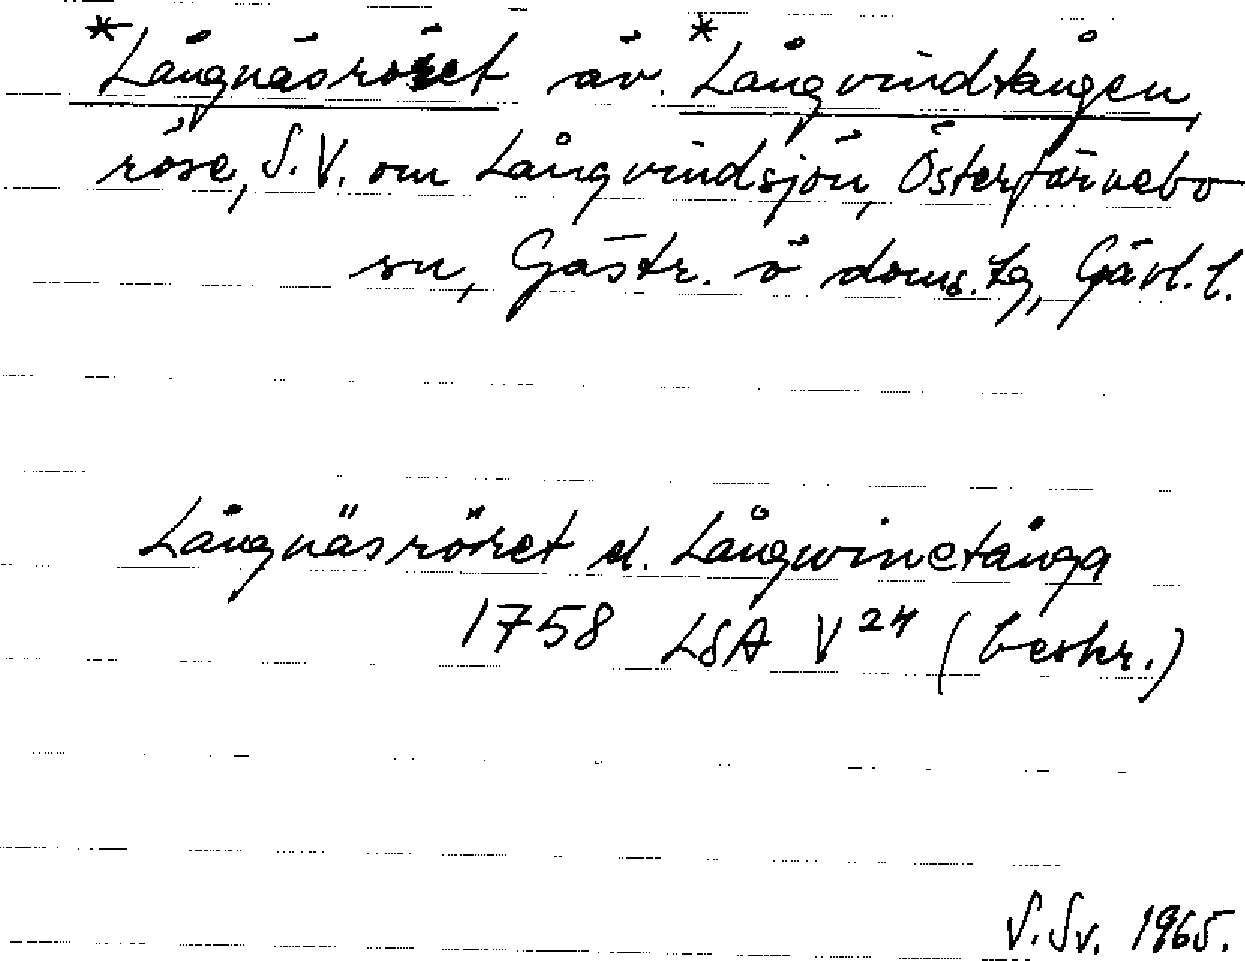 *Långnäsröset äv. *Långvindtången
röse, S.V. om Långvindsjön, Österfärnebo
sn, Gästr. ö doms.lg, Gävl.l.
Långnäsröret el. Långwinetånga
1758 LSA V 24 (beskr.)
S.Sv. 1965.